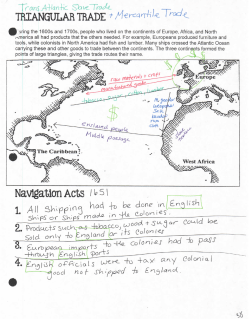 TransAtlantic Slave Trade
TRIANGULAR TRADE + Mercantile Trade
uring the 1600s and 1700s, people who lived on the continents of Europe, Africa, and North
America all had products that the others needed. For example, Europeans produced furniture and
tools, while colonists in North America had fish and lumber. Many ships crossed the Atlantic Ocean
carrying these and other goods to trade between the continents. The three continents formed the
points of large triangles, giving the trade routes their name.
Raw materials + crops
manufactured goods
Europe
Enslaved people
Middle passage
The Caribbean
West Africa
Navigation Acts 1651
1. All Shipping had to be done in English
Ships or Ships made in the colonies
2. Products such as tobacco, wood + sugar could be
sold only to England or its colonies
3. European imports to the colonies had to pass
through English ports
4. English officials were to tax any colonial
good not shipped to England